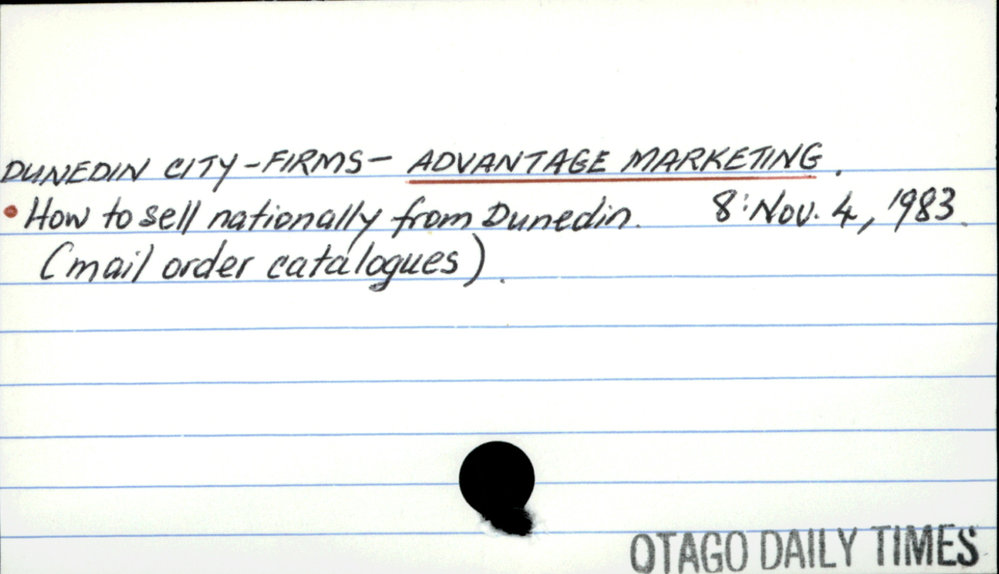 DUNEDIN CITY-FIRMS- ADVANTAGE MARKETING.
• How to sell nationally from Dunedin. 8:Nov. 4, 1983.
(mail order catalogues).
OTAGO DAILY TIMES